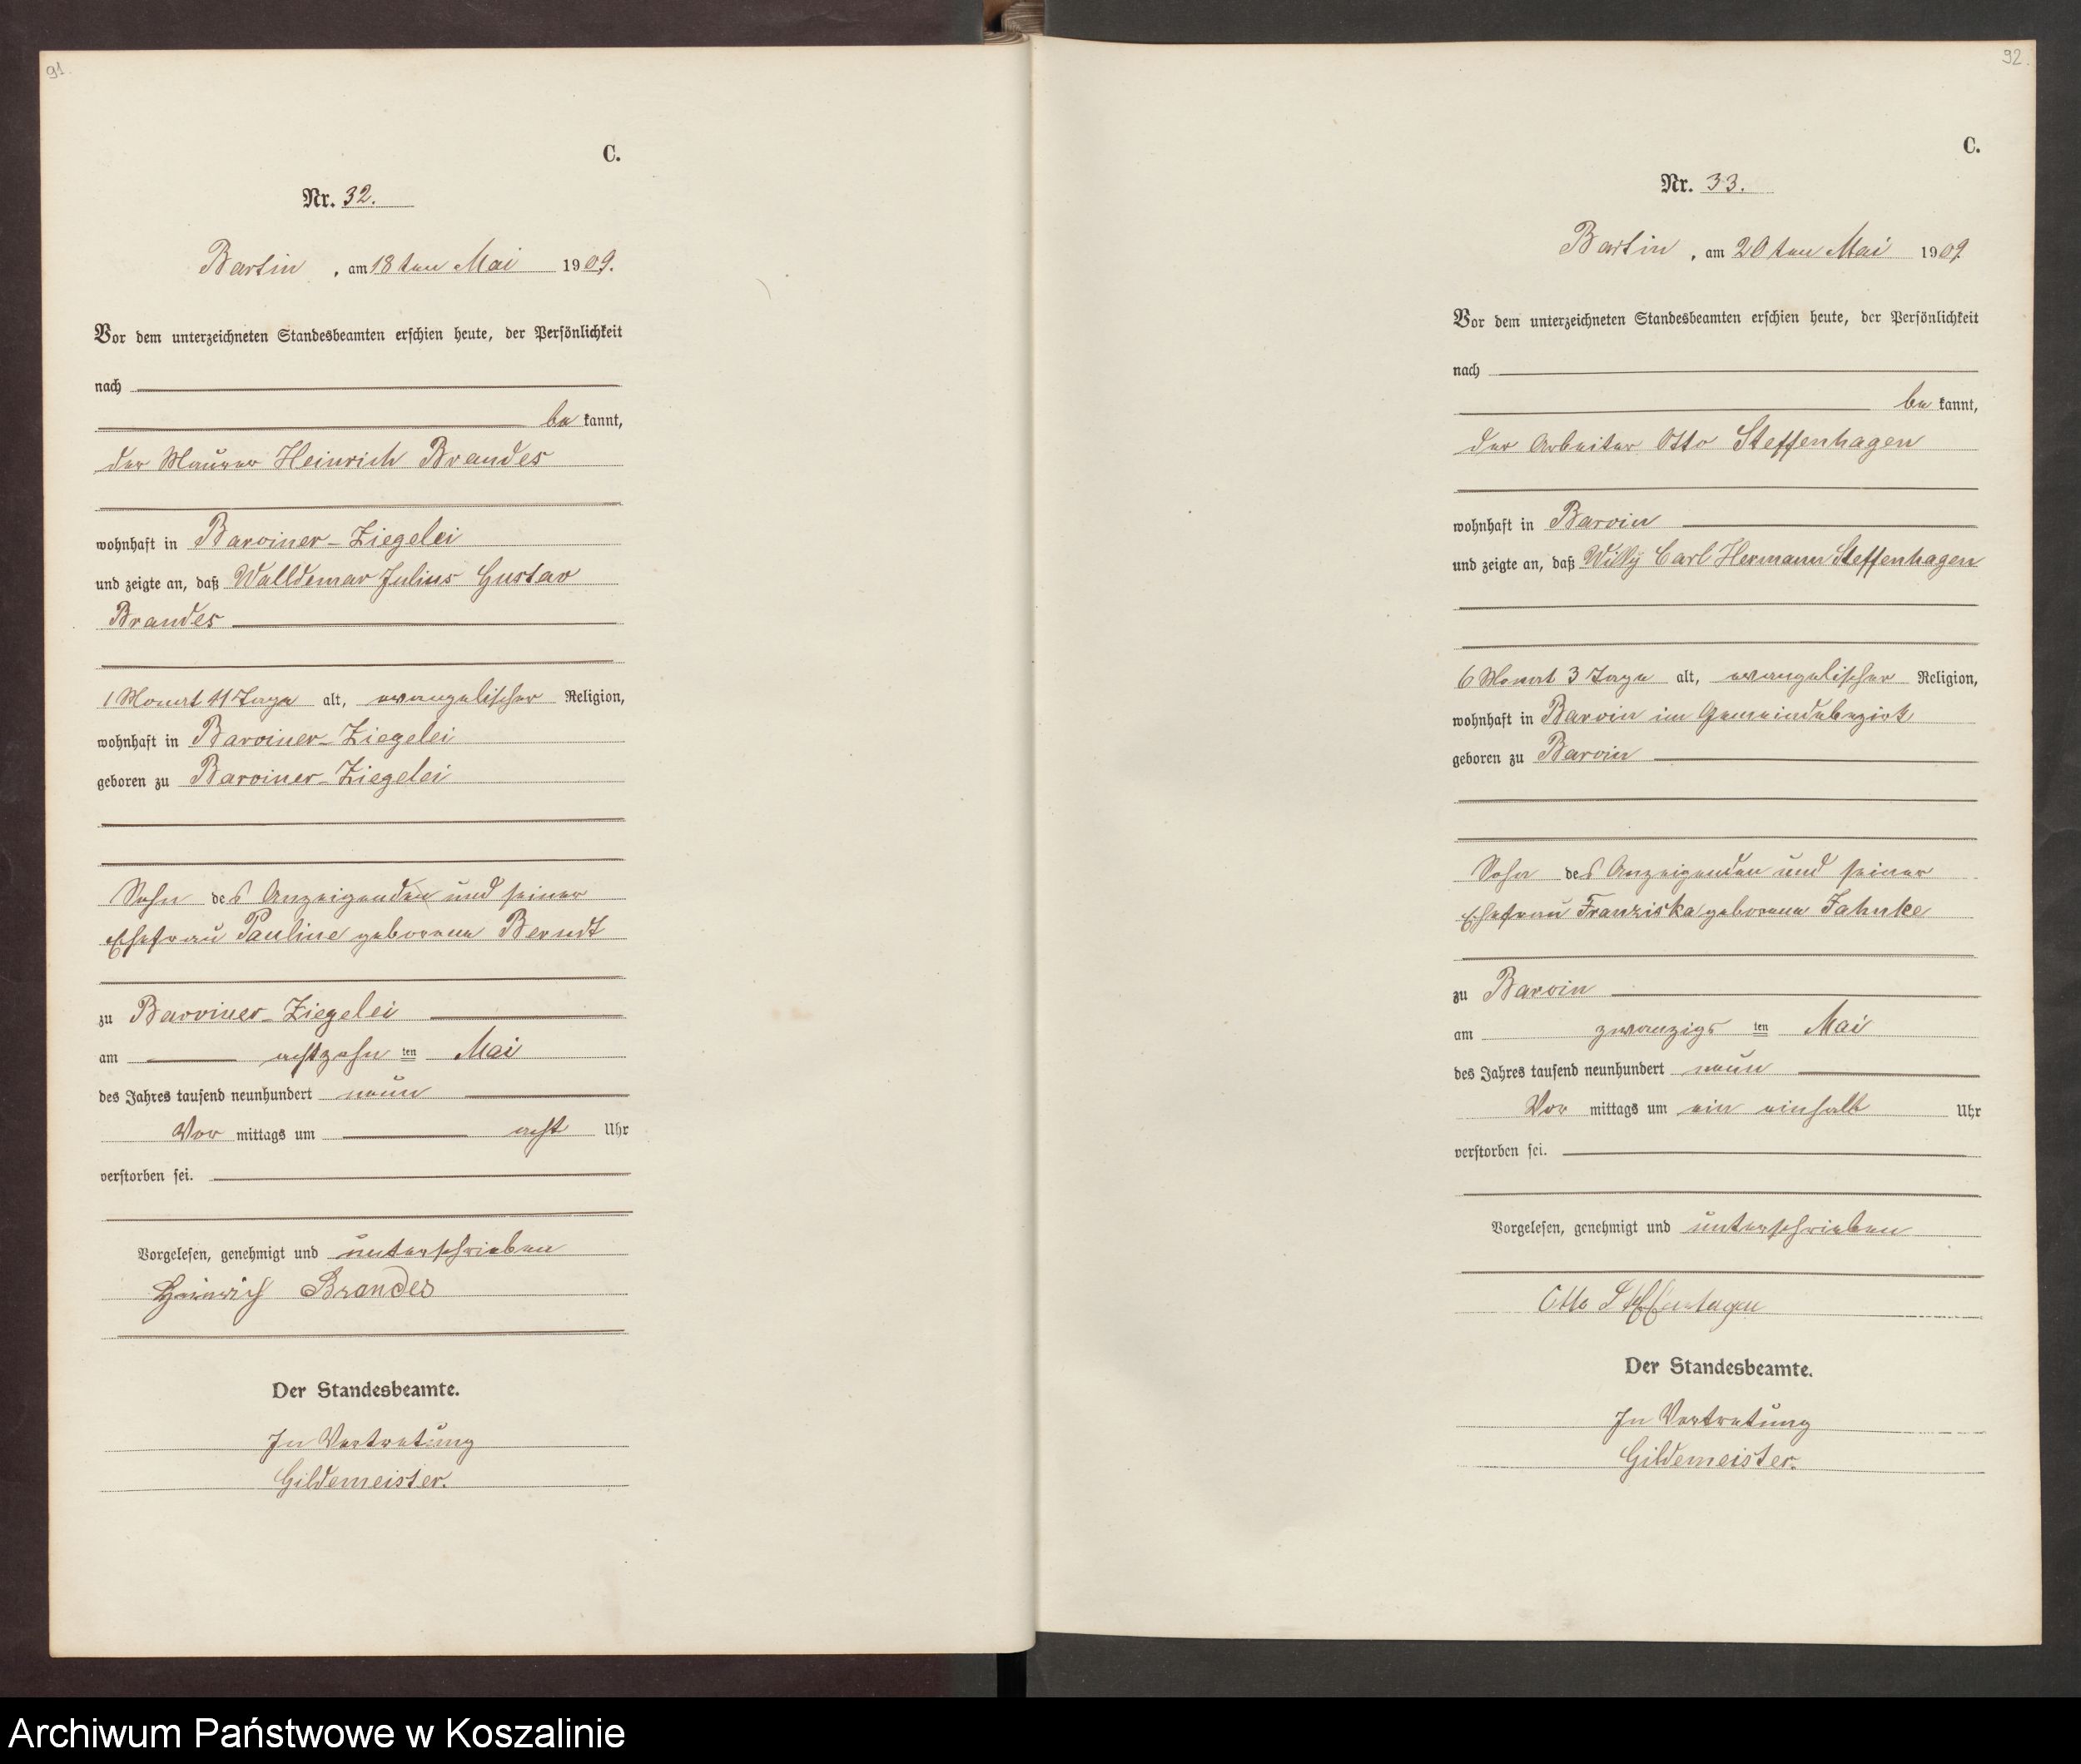 91.
C.
Nr. 32.
Bartin, am 18ten Mai 1909.
Vor dem unterzeichneten Standesbeamten erschien heute, der Persönlichkeit
nach
bekannt,
der Maurer Heinrich Brandes
wohnhaft in Barviner-Ziegelei
und zeigte an, daß Walldemar Julius Gustav
Brandes
1 Monat 11 Tage alt, evangelischer Religion,
wohnhaft in Barviner-Ziegelei
geboren zu Barviner-Ziegelei
Sohn des Anzeigenden und seiner
Ehefrau Pauline geborene Berndt
zu Barviner-Ziegelei
am achtzehn ten Mai
des Jahres tausend neunhundert neun
Vor mittags um acht Uhr
verstorben sei.
Vorgelesen, genehmigt und unterschrieben
Heinrich Brandes
Der Standesbeamte.
In Vertretung
Gildemeister.
92.
C.
Nr. 33.
Bartin, am 20ten Mai 1909.
Vor dem unterzeichneten Standesbeamten erschien heute, der Persönlichkeit
nach
bekannt,
der Arbeiter Otto Steffenhagen
wohnhaft in Barvin
und zeigte an, daß Willy Carl Hermann Steffenhagen
6 Monat 3 Tage alt, evangelischer Religion,
wohnhaft in Barvin im Gemeindebezirk
geboren zu Barvin
Sohn des Anzeigenden und seiner
Ehefrau Franziska geborene Jahnke
zu Barvin
am zwanzigs ten Mai
des Jahres tausend neunhundert neun
Vor mittags um ein einhalb Uhr
verstorben sei.
Vorgelesen, genehmigt und unterschrieben
Otto Steffenhagen
Der Standesbeamte.
In Vertretung
Gildemeister.
Archiwum Państwowe w Koszalinie